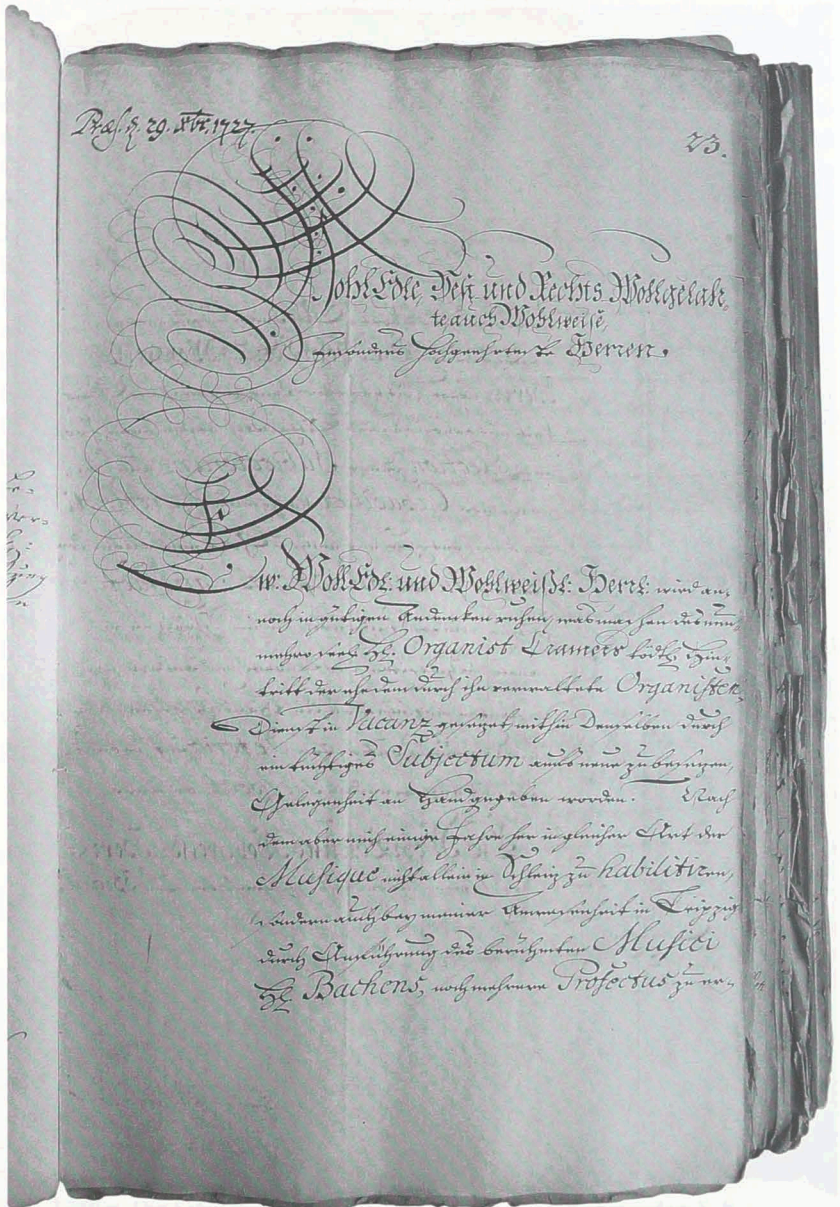 Præs. d. 29. Xbr. 1727.
23.
Wohl Edle, Vest und Rechts Wohlgelahr-
te auch Wohlweise,
besonders Hochgeehrteste Herren.
Ew: Wohl Edl: und Wohlweißl: Herrl: wird an-
noch in gütigen Andencken ruhen, was machen des nun-
mehro seel: H: Organist Cramers tödtl: Hin-
tritt der ehedem durch ihn verwaltete Organisten
Dienst in Vacanz gesezet, mithin Denselben durch
ein tüchtiges Subjectum aufs neue zu besezen,
Gelegenheit an Hand gegeben worden. Nach
dem aber mich einige Jahre her in gleicher Art der
Musique nicht allein in Schleiz zu habilitiren,
sondern auch bey meiner Anwesenheit in Leipzig
durch Anführung des berühmten Musici
H: Bachens, noch mehrere Profectus zu er-